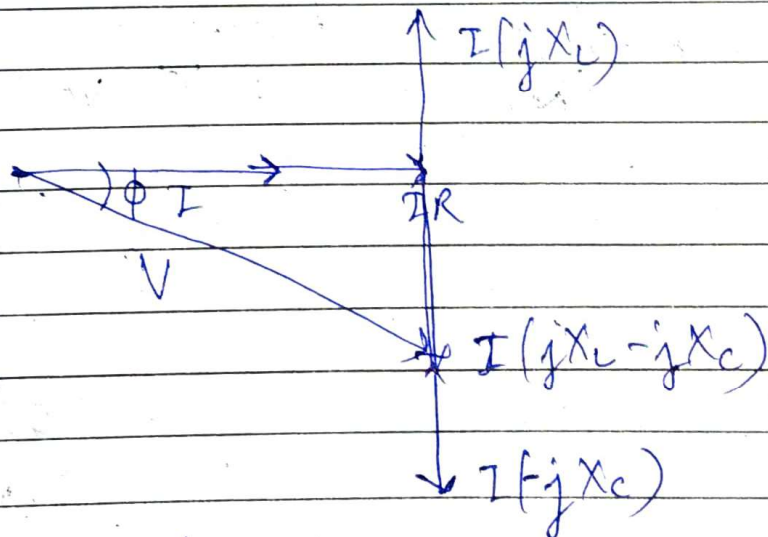 I(jX_L)
ϕ I
IR
V
I(jX_L - jX_C)
I(-jX_C)